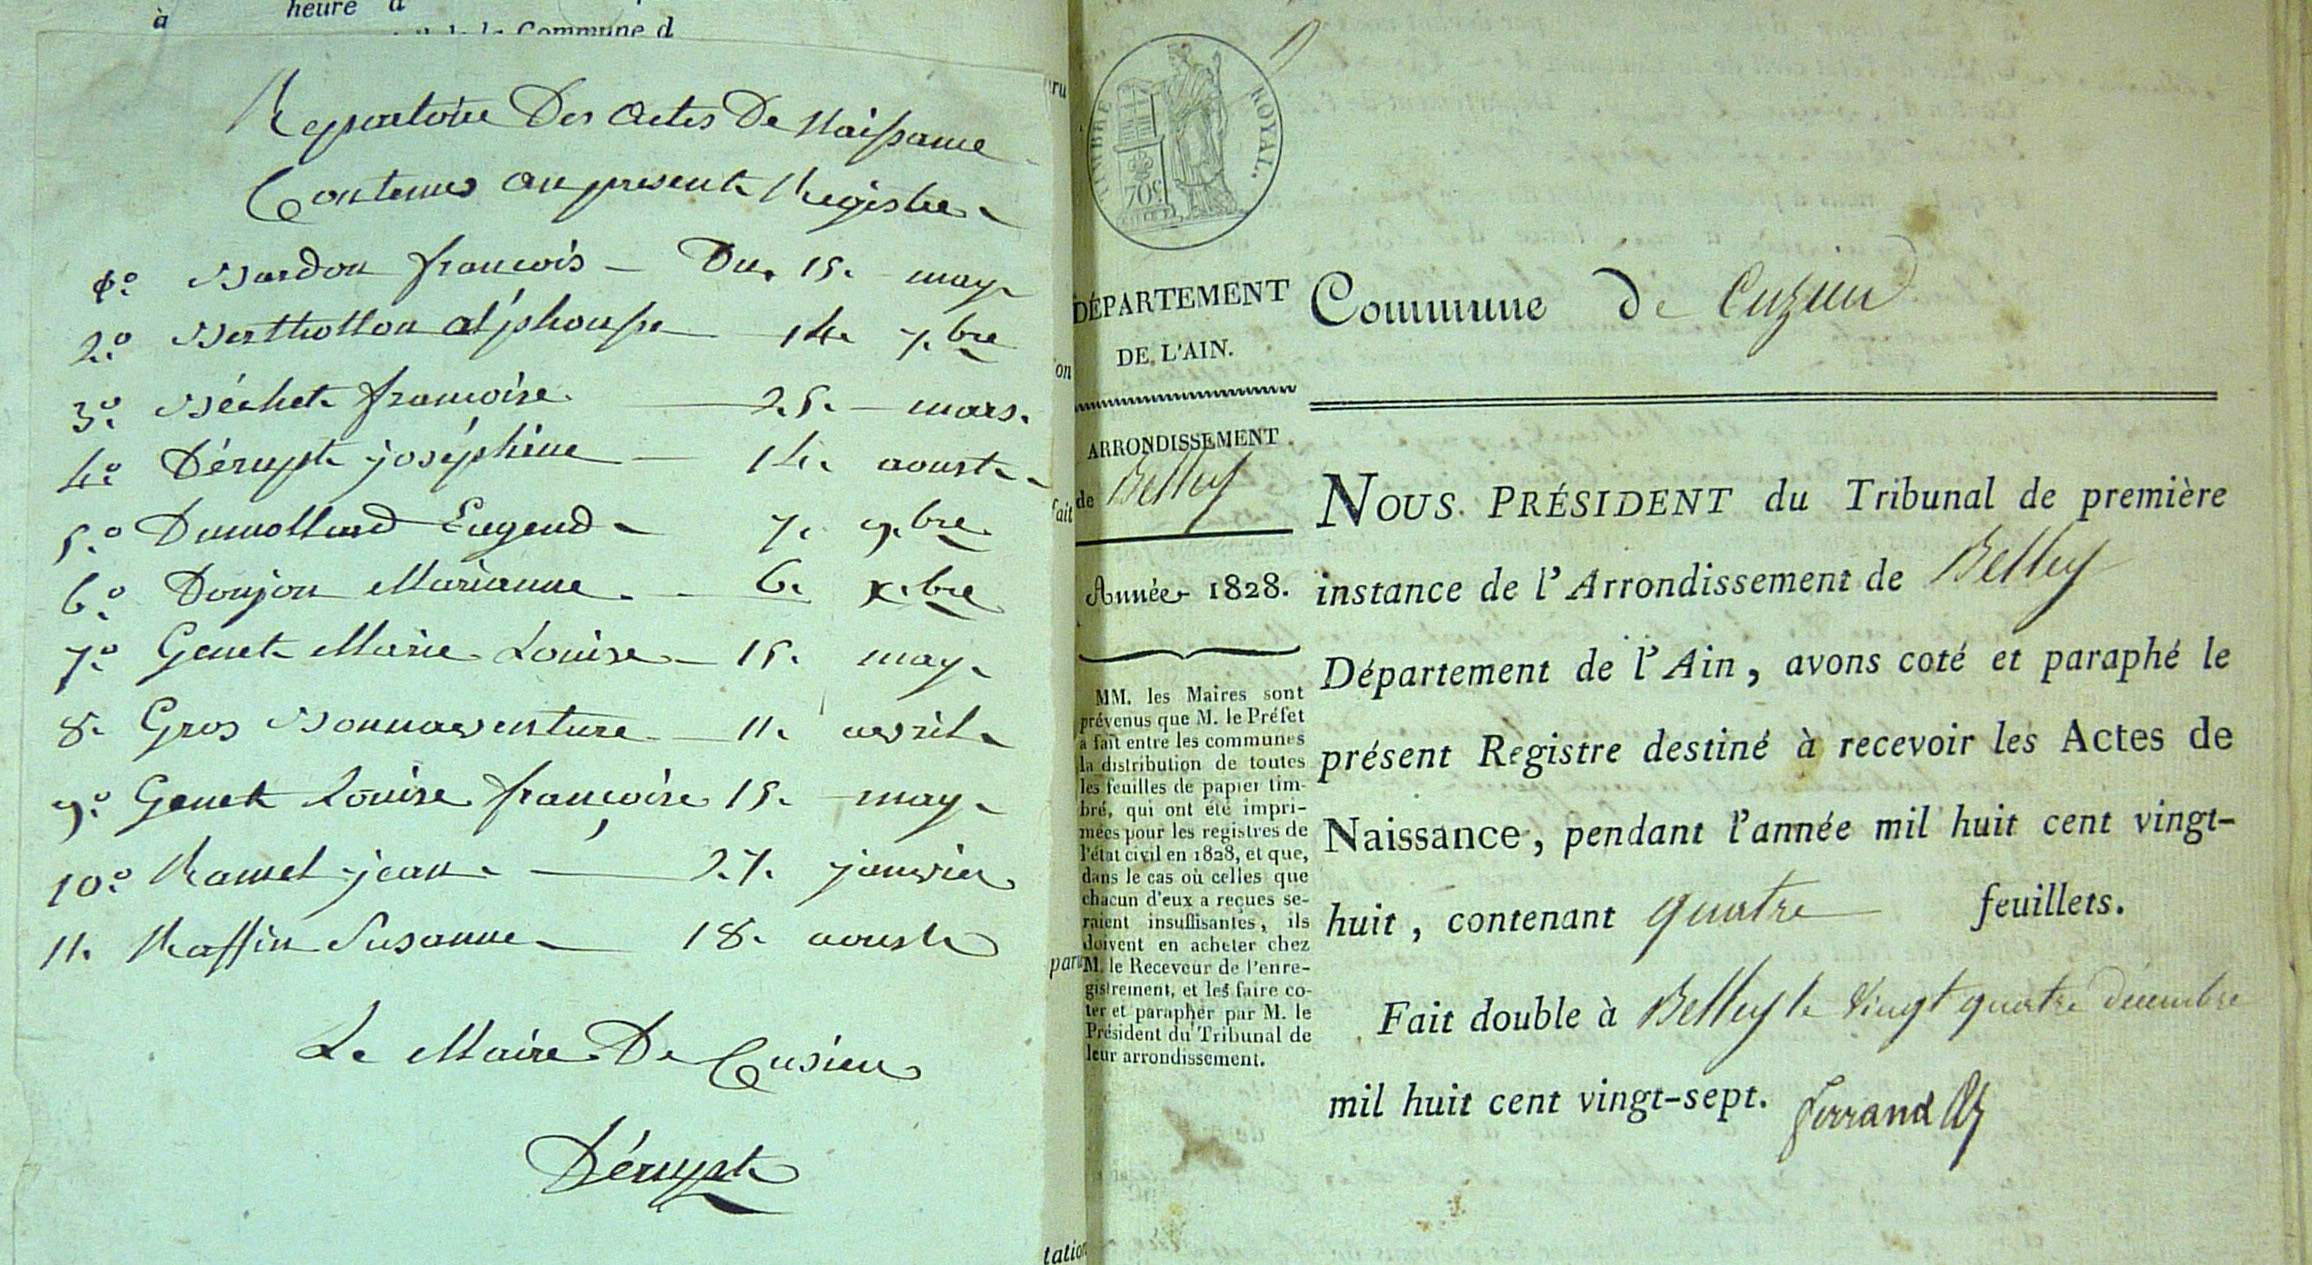 à
heure à
Commune d
Repertoire Des actes De Naissance
Contenus au present Registre
1.° Bardon françois — Du. 15. may
2.° Berthollon alphonse — 14. 7.bre
3.° Béchet françoise. — 25. — mars.
4.° Dérupt joséphine — 14. aoust
5.° Dumollard Eugend 7. 9.bre
6.° Donjon Marianne. — 6. x.bre
7.° Genet Marie Louise — 15. may
8. Gros Bonnaventure — 11. avril
9.° Genet Louise françoise 15. — may
10.° Ramel jean — 27. janvier
11. Raffin Susanne — 18. aoust
Le Maire De Cusieu
Dérupt
ru
on
fait
paru
tation
TIMBRE ROYAL.
70c.
DÉPARTEMENT
DE L'AIN.
ARRONDISSEMENT
de Belley
Année 1828.
MM. les Maires sont
prévenus que M. le Préfet
a fait entre les communes
la distribution de toutes
les feuilles de papier tim-
bré, qui ont été impri-
mées pour les registres de
l'état civil en 1828, et que,
dans le cas où celles que
chacun d'eux a reçues se-
raient insuffisantes, ils
doivent en acheter chez
M. le Receveur de l'enre-
gistrement, et les faire co-
ter et parapher par M. le
Président du Tribunal de
leur arrondissement.
Commune de Cuzieu
NOUS PRÉSIDENT du Tribunal de première
instance de l'Arrondissement de Belley
Département de l'Ain, avons coté et paraphé le
présent Registre destiné à recevoir les Actes de
Naissance, pendant l'année mil huit cent vingt-
huit, contenant quatre feuillets.
Fait double à Belley le vingt quatre décembre
mil huit cent vingt-sept. Ferrand